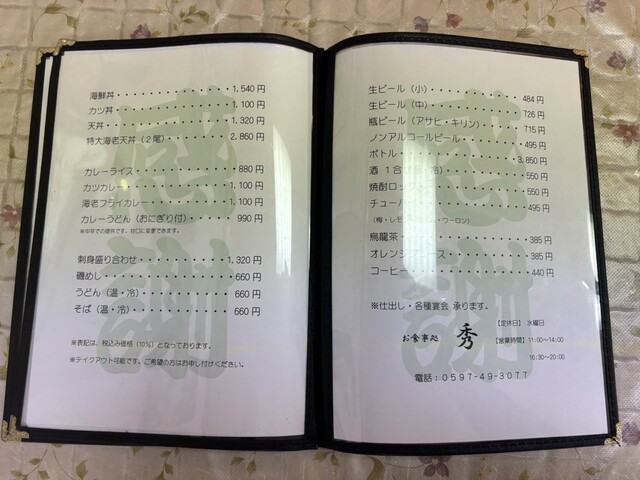 海鮮丼・・・・・・・・・・・・・1,540円
カツ丼・・・・・・・・・・・・・1,100円
天丼・・・・・・・・・・・・・・1,320円
特大海老天丼(2尾)・・・・・・・2,860円
カレーライス・・・・・・・・・・880円
カツカレー・・・・・・・・・・・1,100円
海老フライカレー・・・・・・・・1,100円
カレーうどん(おにぎり付)・・・・990円
※中辛での提供です。甘口に変更できます。
刺身盛り合わせ・・・・・・・・・1,320円
磯めし・・・・・・・・・・・・・660円
うどん(温・冷)・・・・・・・・・660円
そば(温・冷)・・・・・・・・・・660円
※表記は、税込み価格(10%)となっております。
※テイクアウト可能です。ご希望の方はお申し付けください。
感謝
生ビール(小)・・・・・・・・・484円
生ビール(中)・・・・・・・・・726円
瓶ビール(アサヒ・キリン)・・・・715円
ノンアルコールビール・・・・・・495円
ボトル・・・・・・・・・・・・・3,850円
酒 1合・・・・・・550円
焼酎ロック・・・・・・550円
チューハ・・・・・・495円
(梅・レモ・ウーロン)
烏龍茶・・・・・・・・・・・・・385円
オレンジ ース・・・・・・・・・385円
コーヒー・・・・・・・・・・・・440円
※仕出し・各種宴会 承ります。
お食事処 秀
【定休日】 水曜日
【営業時間】 11:00~14:00
16:30~20:00
電話:0597-49-3077
感謝